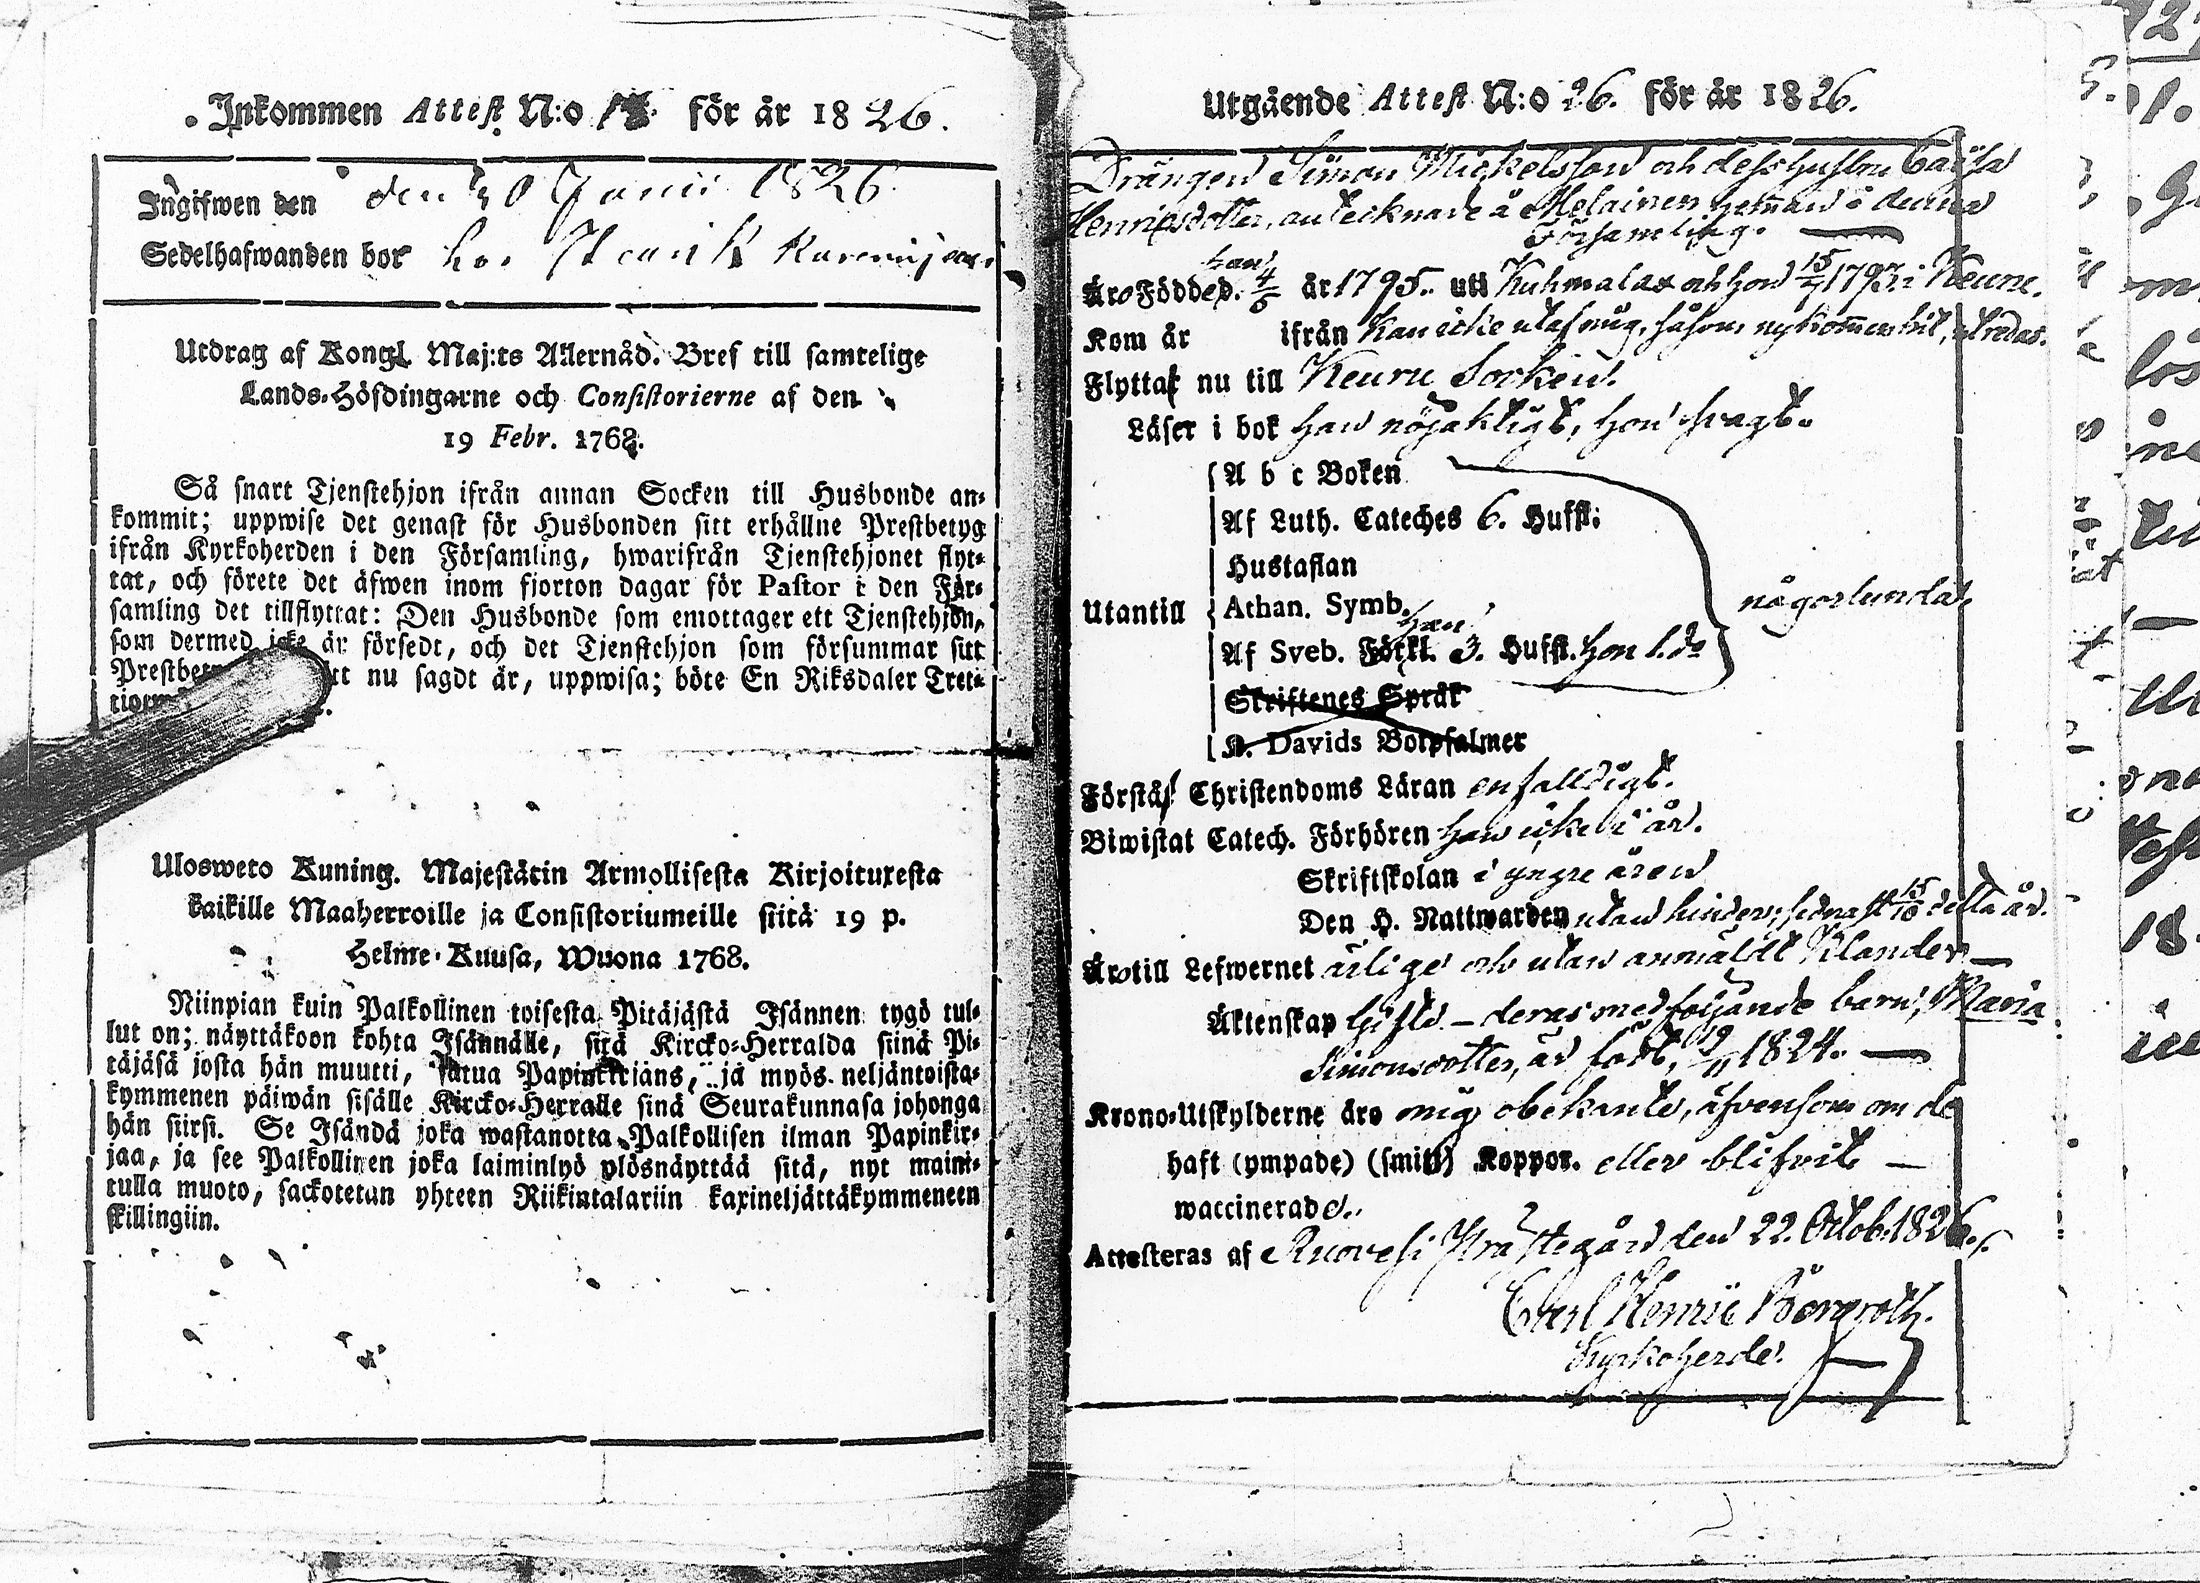 Inkommen Attest N:o för år 1826.
Ingifwen den den Junii 1826
Sedelhafwanden bor hos
Utdrag af Kongl. Maj:ts Allernåd. Bref till samtelige
Lands-Höfdingarne och Consistorierne af den
19 Febr. 1768.
Så snart Tjenstehjon ifrån annan Socken till Husbonde an-
kommit; uppwise det genast för Husbonden sitt erhållne Prestbetyg
ifrån Kyrkoherden i den Församling, hwarifrån Tjenstehjonet flyt-
tat, och förete det äfwen inom fjorton dagar för Pastor i den För-
samling det tillflyttat: Den Husbonde som emottager ett Tjenstehjon,
som dermed icke är försedt, och det Tjenstehjon som försummar sitt
nu sagdt är, uppwisa; böte En Riksdaler Tret-
Ulosweto Kuning. Majestätin Armollisesta Kirjoituxesta
kaikille Maaherroille ja Consistoriumeille siitä 19 p.
Helme-Kuusa, Wuona 1768.
Niinpian kuin Palkollinen toisesta Pitäjästä Isännen tygö tul-
lut on; näyttäkoon kohta Isännälle, sitä Kircko-Herralda siinä Pi-
täjäsä josta hän muutti, Papinkirians, ja myös neljäntoista-
kymmenen päiwän sisälle Kircko-Herralle sinä Seurakunnasa johonga
hän siirsi. Se Isändä joka wastanotta Palkollisen ilman Papinkir-
jaa, ja see Palkollinen joka laiminlyö ylösnäyttää sitä, nyt maini-
tulla muoto, sackotetan yhteen Riikintalariin kaxineljättäkymmeneen
skillingiin.
Utgående Attest N:o 26. för år 1826.
Drängen Simon Mickelsson och dess hustru Caisa
Henricsdotter, antecknade å Melainen hemman i denna
Församling.
Äro Födde d. han 4/5 år 1795. uti Kuhmalax och hon 1793 i Keuru.
Kom år ifrån kan icke utaf mig, såsom nykommen hit, utredas.
Flytta nu till Keuru Socken.
Läser i bok han nöjaktigt, hon svagt.
A b c Boken
Af Luth. Cateches 6. Hufst:
Hustaflan
Utantill Athan. Symb. någorlunda.
Af Sveb. Förkl. han 3. Hufst. hon 1. do
Skriftenes Språk
K. Davids Botpsalmer
Förstå Christendoms Läran enfalldigt.
Biwistat Catech. Förhören han icke i år.
Skriftskolan i yngre åren
Den H. Nattwarden utan hinder, sednast 15/10 detta år.
Äro till Lefwernet ärlige och utan anmäldt Klander —
Äktenskap Gifte. — deras medföljande barn, Maria
Simonsdotter, är född, 1824. —
Krono-Utskylderne äro mig obekante, äfvensom om de
haft (ympade) (smitt) Koppor. eller blifvit —
waccinerade.
Attesteras af Ruovesi Prästegård den 22. Octob. 1826.
Carl Henric Bergroth.
Kyrkoherde.